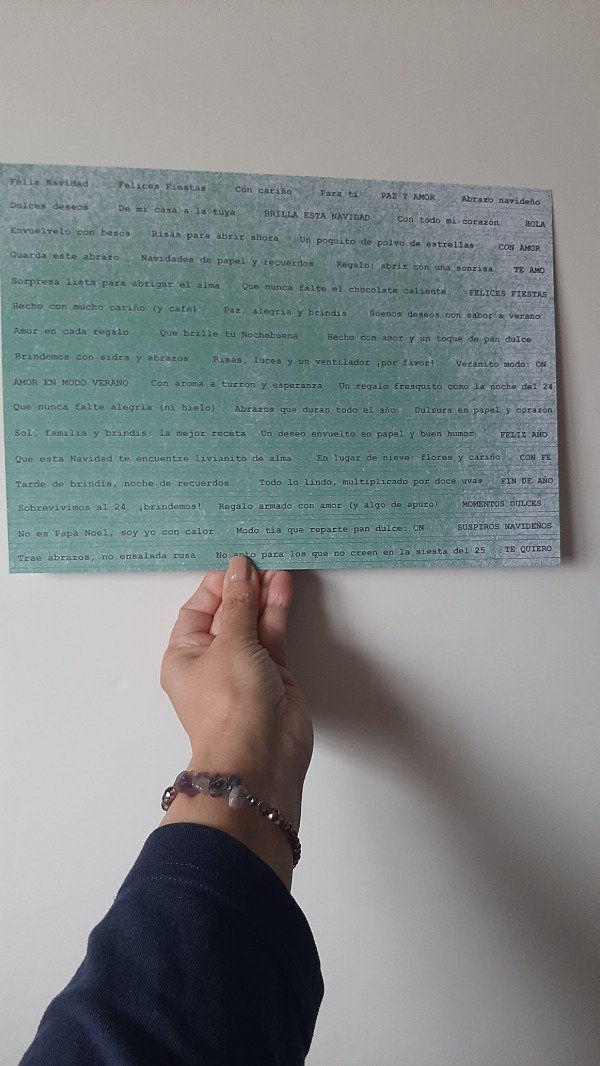 Feliz Navidad Felices Fiestas Con cariño Para ti PAZ Y AMOR Abrazo navideño
Dulces deseos De mi casa a la tuya BRILLA ESTA NAVIDAD Con todo mi corazón HOLA
Envuelvelo con besos Risas para abrir ahora Un poquito de polvo de estrellas CON AMOR
Guarda este abrazo Navidades de papel y recuerdos Regalo: abrir con una sonrisa TE AMO
Sorpresa lista para abrigar el alma Que nunca falte el chocolate caliente FELICES FIESTAS
Hecho con mucho cariño (y café) Paz, alegría y brindis Buenos deseos con sabor a verano
Amor en cada regalo Que brille tu Nochebuena Hecho con amor y un toque de pan dulce
Brindemos con sidra y abrazos Risas, luces y un ventilador ¡por favor! Veranito modo: ON
AMOR EN MODO VERANO Con aroma a turrón y esperanza Un regalo fresquito como la noche del 24
Que nunca falte alegría (ni hielo) Abrazos que duran todo el año Dulzura en papel y corazón
Sol, familia y brindis: la mejor receta Un deseo envuelto en papel y buen humor FELIZ AÑO
Que esta Navidad te encuentre livianito de alma En lugar de nieve: flores y cariño CON FE
Tarde de brindis, noche de recuerdos Todo lo lindo, multiplicado por doce uvas FIN DE AÑO
Sobrevivimos al 24. ¡brindemos! Regalo armado con amor (y algo de apuro) MOMENTOS DULCES
No es Papá Noel, soy yo con calor Modo tía que reparte pan dulce: ON SUSPIROS NAVIDEÑOS
Trae abrazos, no ensalada rusa No apto para los que no creen en la siesta del 25 TE QUIERO